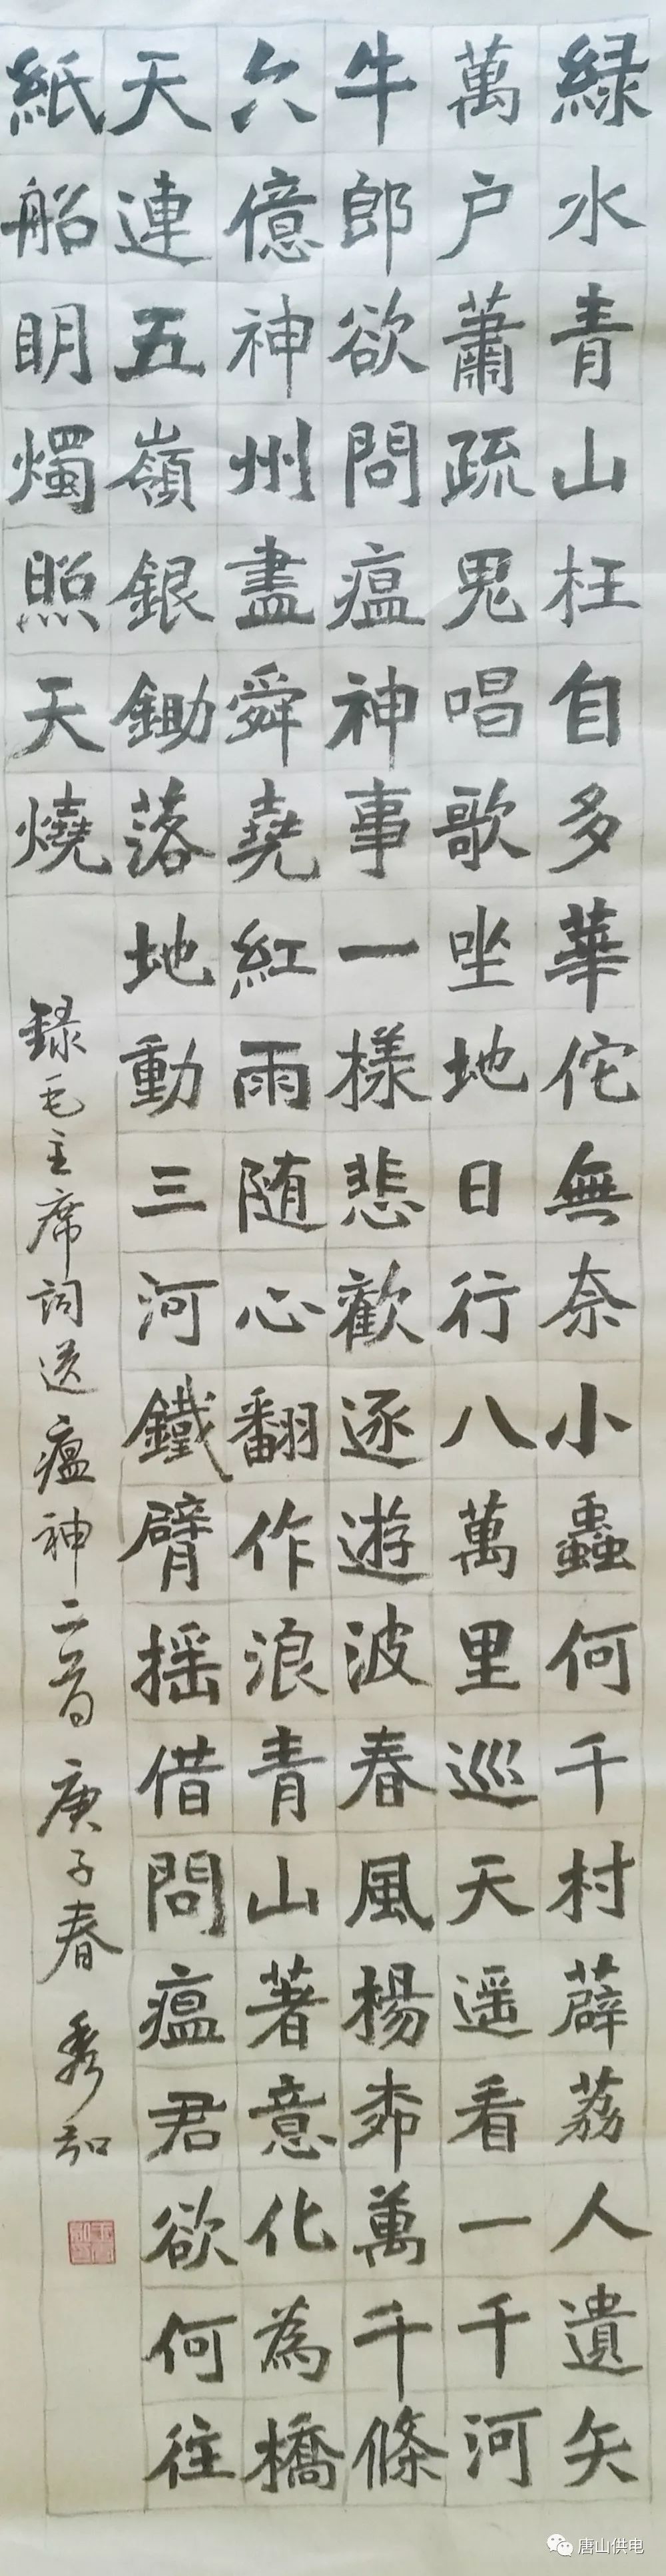 緑水青山枉自多華佗無奈小蟲何千村薜荔人遺矢
萬户蕭疏鬼唱歌坐地日行八萬里巡天遥看一千河
牛郎欲問瘟神事一樣悲歡逐遊波春風楊柳萬千條
六億神州盡舜堯紅雨随心翻作浪青山著意化為橋
天連五嶺銀鋤落地動三河鐵臂摇借問瘟君欲何往
紙船明燭照天燒
録毛主席詞送瘟神二首 庚子春 秀
唐山供电